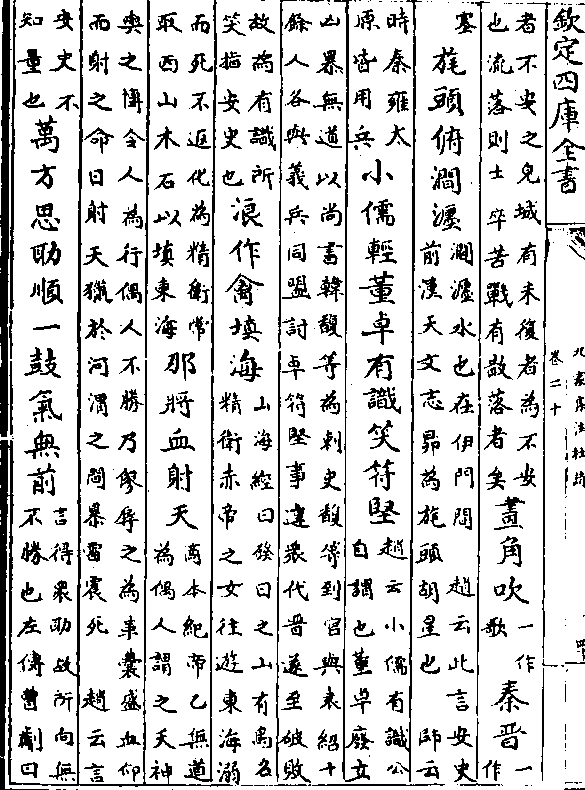 欽定四庫全書
卷二十
者不安之皃城有未復者為不安
也流落則士卒苦戰有故落者矣畫角吹一作歌秦晉一作
塞旄頭俯澗瀍澗瀍水也在伊門間趙云此言安史
前漢天文志昴為旄頭胡星也師云
時秦雍太
原皆用兵小儒輕董卓有識笑符堅趙云小儒有識公
自謂也董卓廢立
凶暴無道以尚書韓馥等為刺史馥等到官與袁紹十
餘人各興義兵同盟討卓符堅事違衆代晉遂至破敗
故為有識所
笑指安史也浪作禽填海山海經曰發曰之山有鳥名
精衛赤帝之女往遊東海溺
而死不返化為精衛常
取西山木石以填東海那將血射天商本紀帝乙無道
為偶人謂之天神
與之博令人為行偶人不勝乃僇辱之為革囊盛血仰
而射之命曰射天獵於河渭之間暴雷震死趙云言
安史不
知量也萬方思助順一鼓氣無前言得衆助故所向無
不勝也左傳曹劌曰